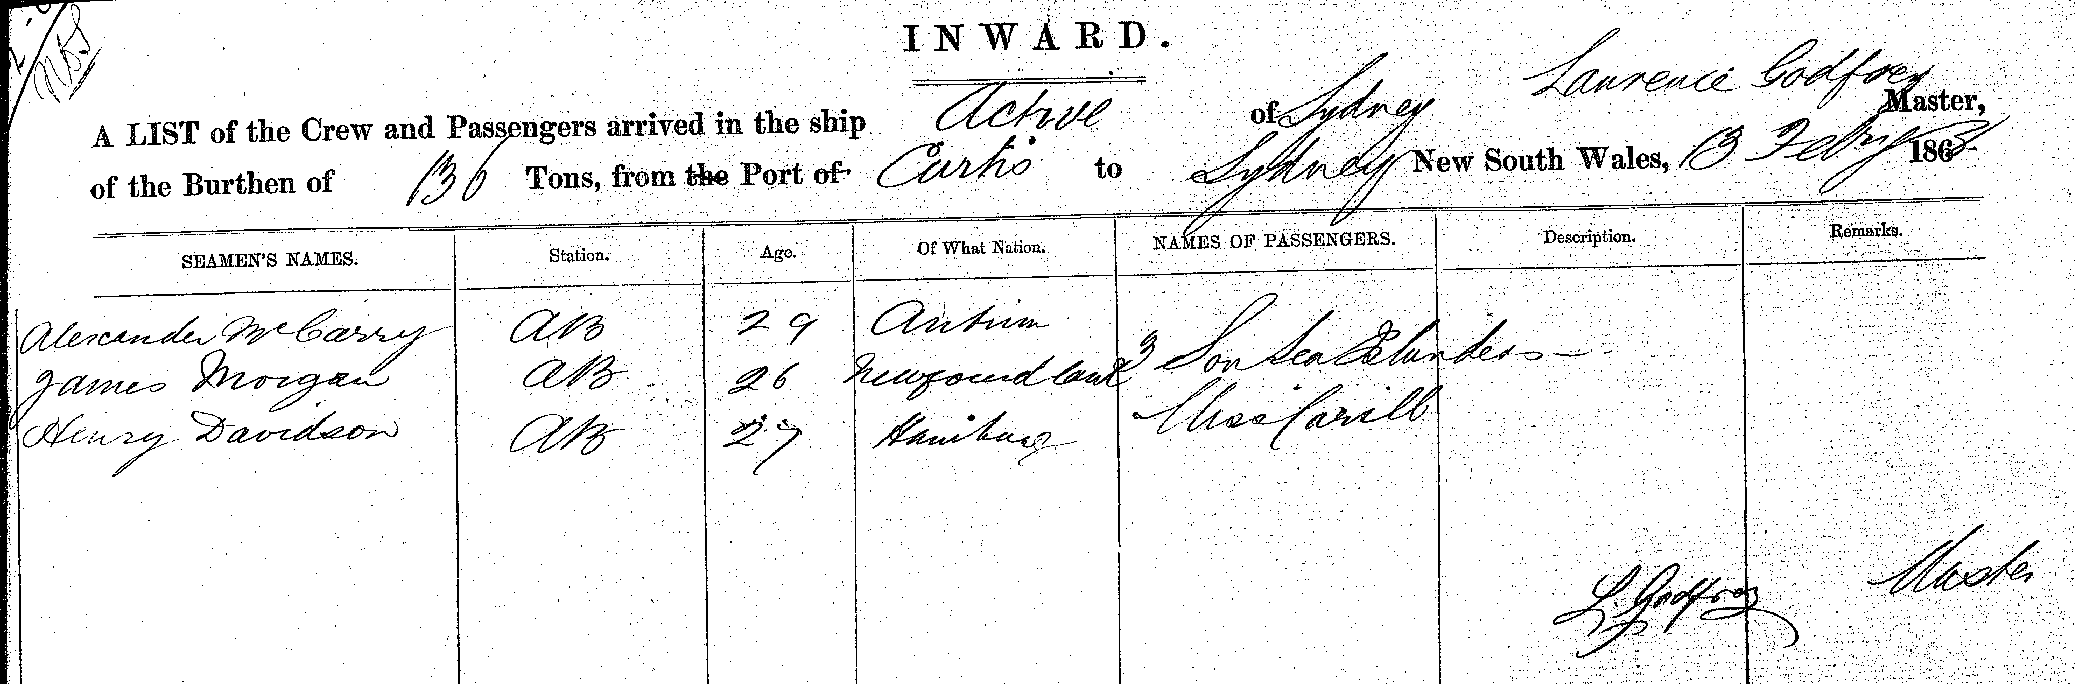 INWARD.
Laurence Godfrey
A LIST of the Crew and Passengers arrived in the ship Active of Sydney Master,
of the Burthen of 136 Tons, from the Port of Curtis to Sydney New South Wales, 13 Febry 186
SEAMEN'S NAMES. Station. Age. Of What Nation. NAMES OF PASSENGERS. Description. Remarks.
Alexander McCarry AB 29 Antrim
3 Sou Sea Islanders
James Morgan AB 26 Newfoundland
Miss
Henry Davidson AB 27 Hamburg
L Godfrey Master